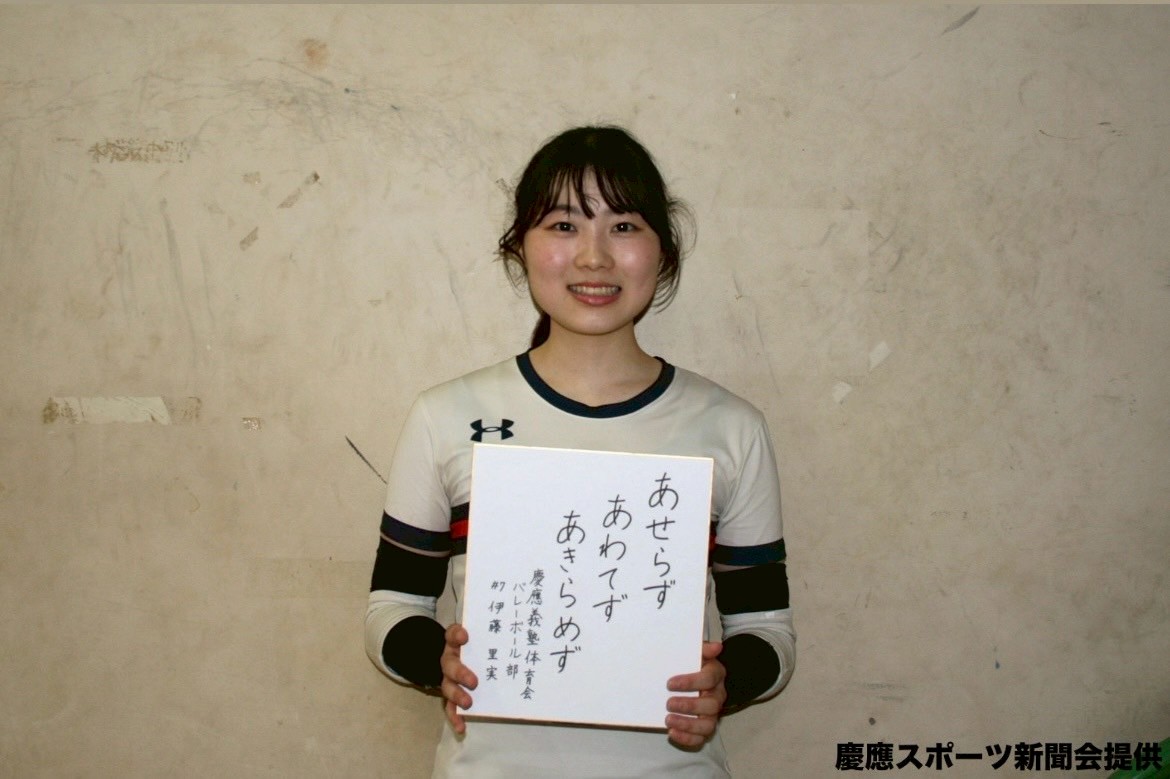 あせらず
あわてず
あきらめず
慶應義塾体育会
バレーボール部
#7 伊藤 里実
慶應スポーツ新聞会提供